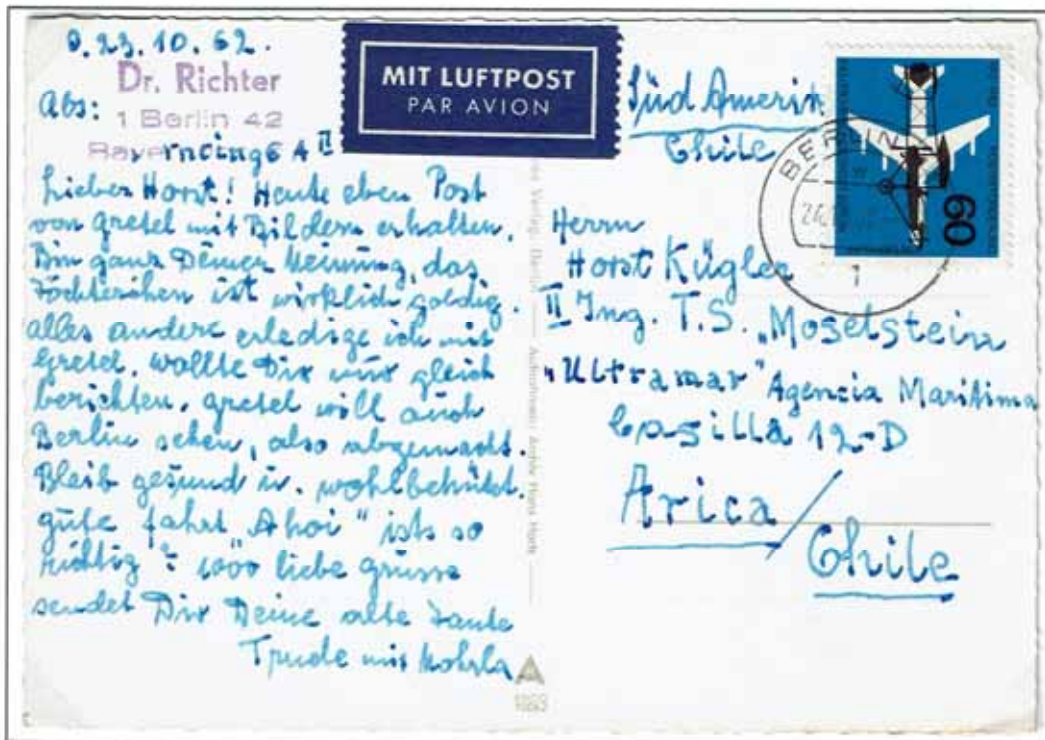 B. 23.10.62.
Abs:
Dr. Richter
1 Berlin 42
MIT LUFTPOST
PAR AVION
Süd Amerik
Chile
Lieber Horst! Heute eben Post
von Gretel mit Bildern erhalten.
Bin ganz Deiner Meinung, das
Töchterchen ist wirklich goldig.
alles andere erledige ich mit
Gretel, wollte Dir nur gleich
berichten. Gretel will auch
Berlin sehen, also abgemacht.
Bleib gesund u. wohlbehütet.
gute fahrt „Ahoi" ists so
richtig? 1000 liebe grüsse
sendet Dir Deine alte Tante
Trude mit
BERLIN
1
60
Herrn
Horst Kügler
II Ing. T.S. „Moselstein
„Ultramar" Agencia Maritima
Casilla 12-D
Arica/
Chile